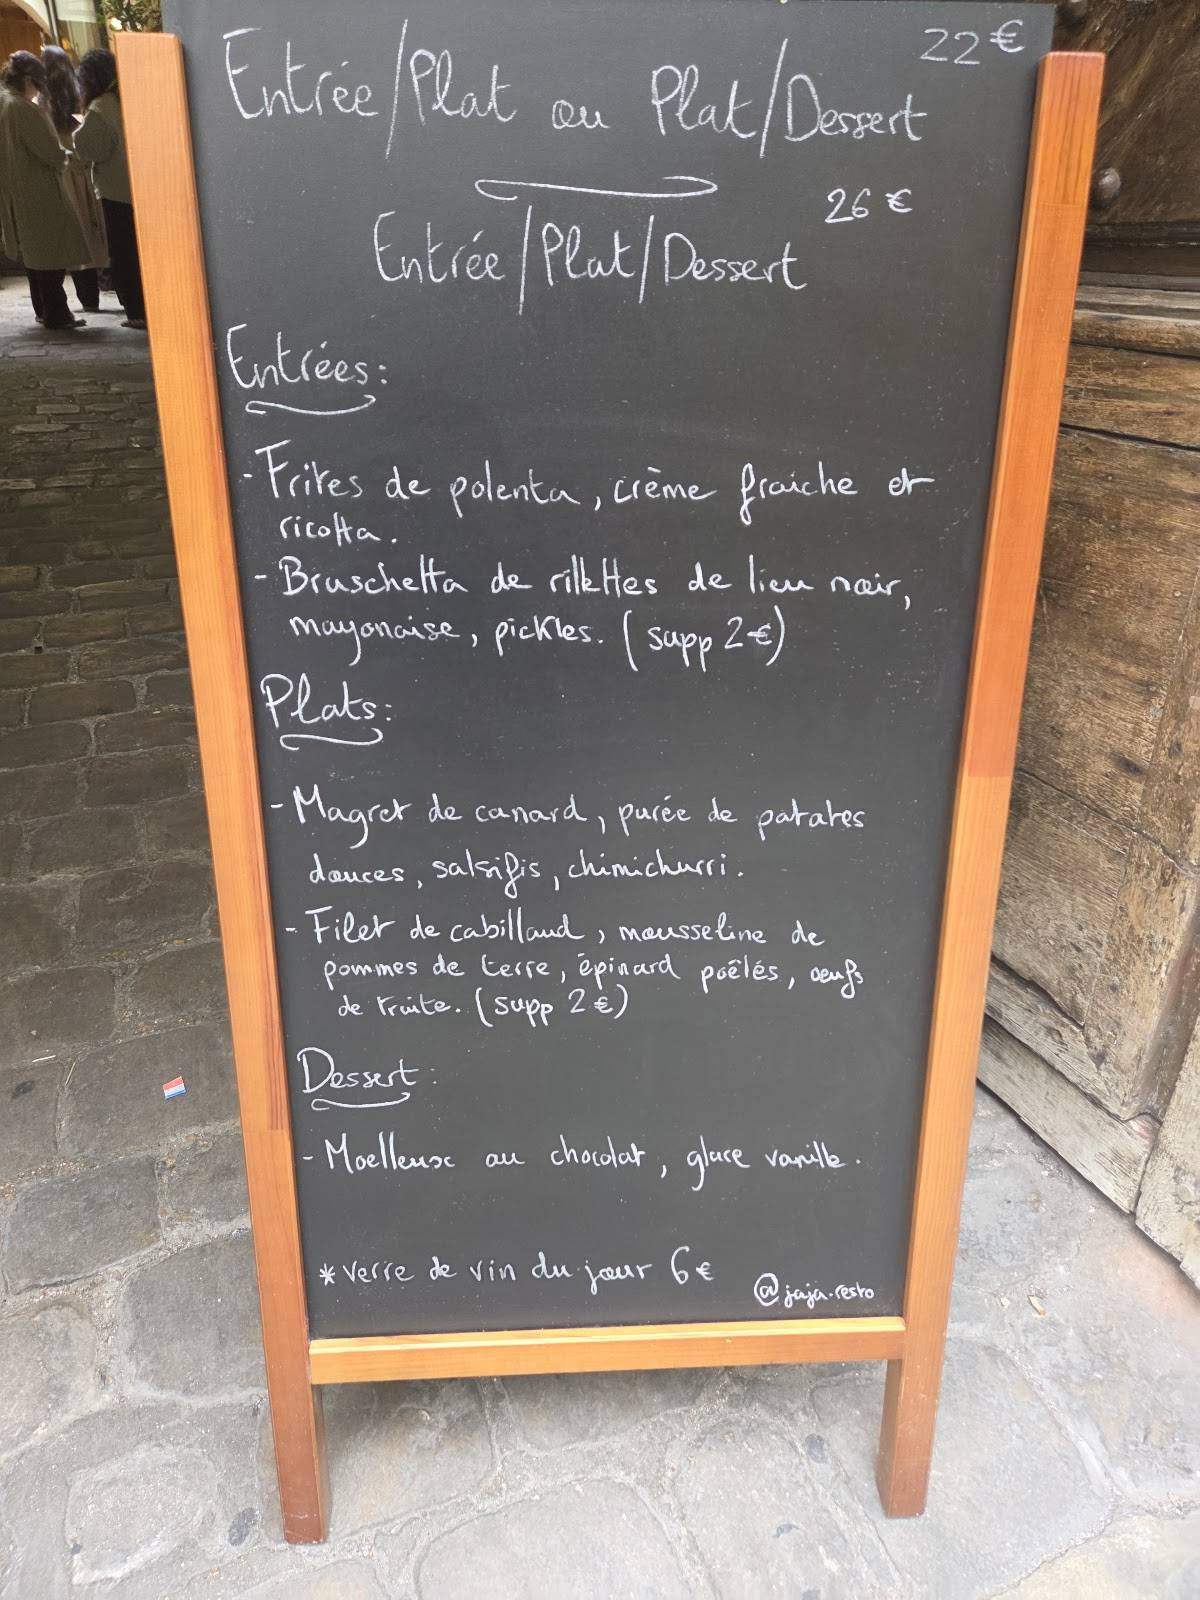 22 €
Entrée/Plat ou Plat/Dessert
26 €
Entrée/Plat/Dessert
Entrées:
- Frites de polenta, crème fraiche et
ricotta.
- Bruschetta de rillettes de lieu noir,
mayonaise, pickles. (supp 2€)
Plats:
- Magret de canard, purée de patates
douces, salsifis, chimichurri.
- Filet de cabillaud, mousseline de
pommes de terre, épinard poêlés, oeufs
de truite. (supp 2€)
Dessert:
- Moelleux au chocolat, glace vanille.
* Verre de vin du jour 6€
@jaja.resto